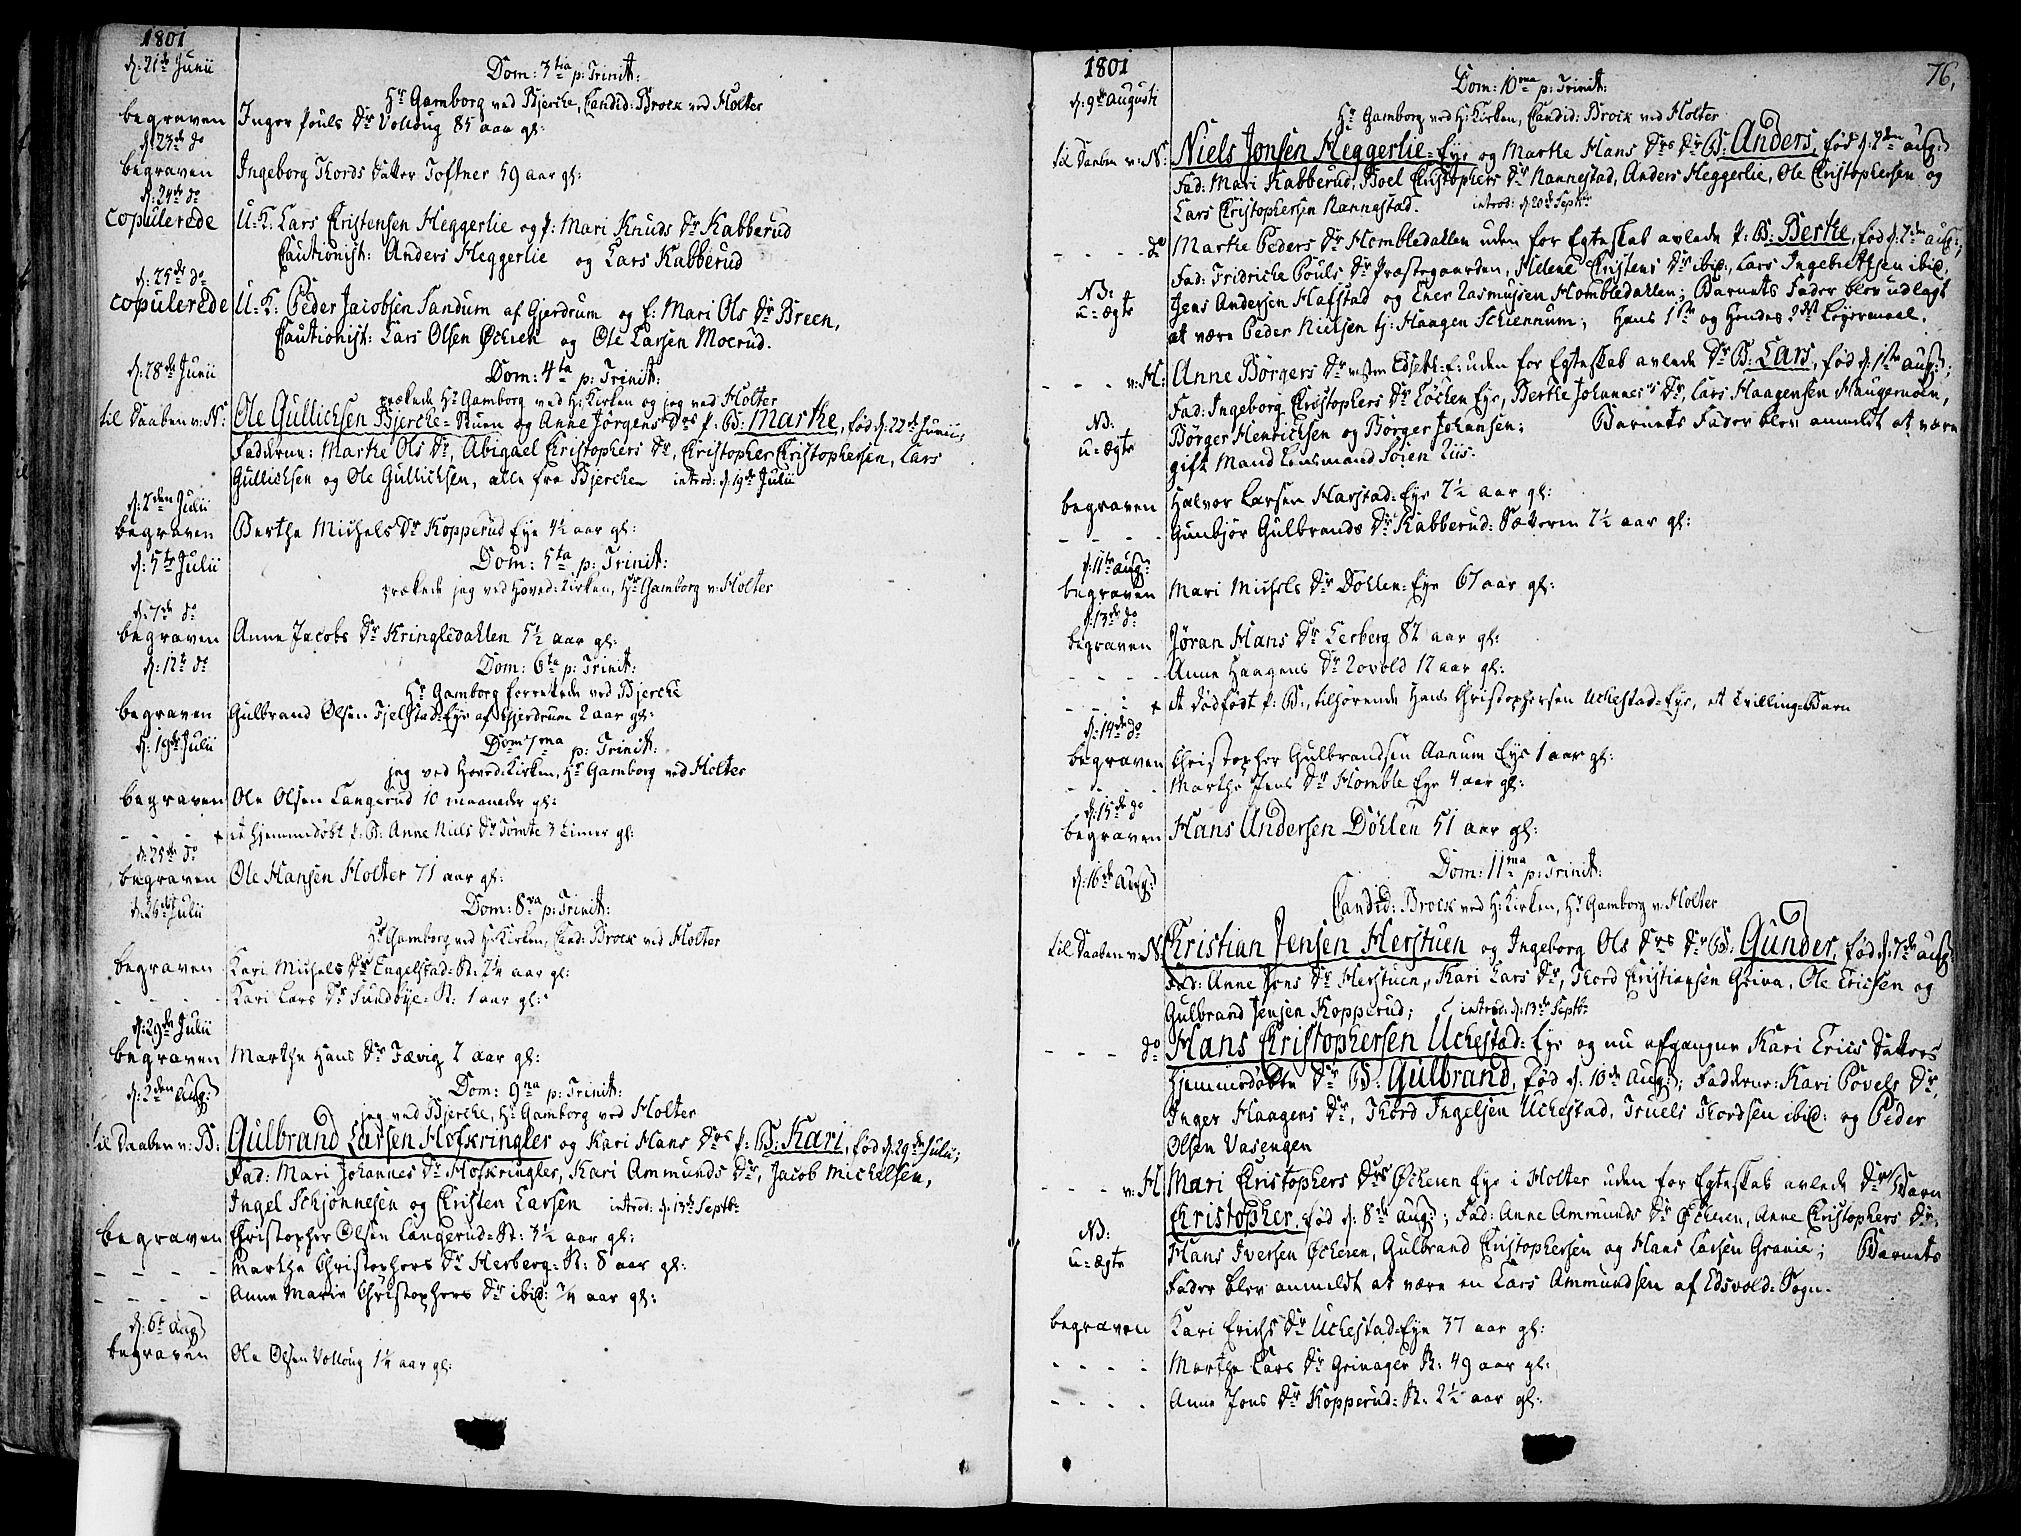 1801
d: 21de Junii
Dom: 3tia p: Trinit:
Hr Gamborg ved Bjerche, Candid: Broch ved Holter
begraven Inger Pouls Dr Vollaug 85 aar gl:
d: 23de do
begraven Ingeborg Thords Datter Toftner 59 aar gl:
d: 24de do
copulerede U: K: Lars Christensen Heggerlie og p: Mari Knuds Dr Kabberud
Cautionist: Anders Heggerlie og Lars Kabberud
d: 25de do
copulerede U: K: Peder Jacobsen Sandum af Gjerdrum og p: Mari Ols Dr Breen,
Cautionist: Lars Olsen Øchren og Ole Larsen Moerud.
d: 28de Junii
Dom: 4ta p: Trinit:
prækede Hr Gamborg ved H: Kirken og jeg ved Holter
til Daaben v: N: Ole Gullichsen Bjerche-Stuen og Anne Jørgens Drs p: B: Marthe, fød d: 22de Junii;
Fadderne: Marthe Ols Dr, Abigael Christophers Dr, Christopher Christophersen, Lars
Gullichsen og Ole Gullichsen, alle fra Bjerche introd: d: 19de Julii
d: 2den Julii
begraven Berthe Michels Dr Kopperud Eye 4½ aar gl:
d: 5te Julii Dom: 5ta p: Trinit:
prækede jeg ved Hoved-Kirken, Hr Gamborg v: Holter
d: 7de do
begraven Anne Jacobs Dr Kringledahlen 5½ aar gl:
d: 12te do Dom: 6ta p: Trinit:
Hr Gamborg forrettede ved Bjerche
begraven Gulbrand Olsen Fjelstad-Eye af Gjerdrum 2 aar gl:
d: 19de Julii Dom 7ma p: Trinit:
jeg ved Hoved-Kirken, Hr Gamborg ved Holter
begraven Ole Olsen Langerud 10 maaneder gl:
- - et hjemmedøbt p: B: Anne Niels Dr Tømte 3 timer gl:
d: 25de do
begraven Ole Hansen Holter 71 aar gl:
d: 26de Julii Dom: 8va p: Trinit:
Hr Gamborg ved H: Kirken, Cand: Broch ved Holter
begraven Kari Michels Dr Engelstad-St: 2¼ aar gl:
- - - - Kari Lars Dr Sundbye-St: 1 aar gl:
d: 29de Julii
begraven Marthe Hans Dr Fævig 2 aar gl:
d: 2den Aug: Dom: 9na p: Trinit:
jeg ved Bjerche, Hr Gamborg ved Holter
til Daaben v: B: Gulbrand Larsen Hofkringler og Kari Hans Drs p: B: Kari, fød d: 29de Julii;
Fad: Mari Johannes Dr Hofkringler, Kari Ammunds Dr, Jacob Michelsen,
Ingel Schjønnesen og Christen Larsen introd: d: 13de Septbr
begraven Christopher Olsen Langerud-St: 3½ aar gl:
- - - - Marthe Christophers Dr Herberg-St: 8 aar gl:
- - - - Anne Marie Christophers Dr ibid: ¾ aar gl:
d: 6te Aug:
begraven Ole Olsen Vollaug 1¼ aar gl:
1801 76,
d: 9de Augusti Dom: 10ma p: Trinit:
Hr Gamborg ved H: Kirken, Candid: Broch ved Holter
til Daaben v: N: Niels Jonsen Heggerlie-Eye og Marthe Hans Drs Dr B: Anders, fød d: 2den Aug:
Fad: Mari Kabberud, Boel Christophers Dr Nannestad, Anders Heggerlie, Ole Christophersen og
Lars Christophersen Nannestad. introd: d: 20de Septbr
- - - - do Marthe Peders Dr Hombledahlen uden for Egteskab avlede p: B: Berthe, fød d: 2den Aug:;
Fad: Fridriche Pouls Dr Præstegaarden, Helene Christens Dr ibid:, Lars Ingebretsen ibid.
NB: Jens Andersen Hafstad og Ener Rasmusen Hombledahlen; Barnets Fader blev udlagt
u-ægte at være Peder Nielsen tj: Haagen Schiennum; Hans 1ste og Hendes 2det Leiermaal.
- - - v: H: Anne Børgers Dr uden for Egteskab avlede Dr B: Lars, fød d: 1ste Aug:;
Fad: Ingeborg Christophers Dr Løchen Eye, Berthe Johannes's Dr, Lars Haagensen Haugermoen,
NB: Børger Henrichsen og Børger Johansen; Barnets Fader blev anmeldt at være
u-ægte gift Mand Lensmand Søren Riis.
begraven Halvor Larsen Harstad-Eye 2½ aar gl:
- - - - Gunbjør Gulbrands Dr Kabberud-Sætteren 7½ aar gl:
d: 11te Aug:
begraven Mari Michels Dr Døhlen-Eye 67 aar gl:
d: 13de do
begraven Jøran Hans Dr Lerberg 82 aar gl:
- - - - Anne Haagens Dr Rovold 12 aar gl:
- - - et dødfødt p: B:, tilhørende Hans Christophersen Uchestad-Eye, et Tvilling-Barn
d: 14de do
begraven Christopher Gulbrandsen Aanum Eye 1 aar gl:
- - - - Marthe Jens Dr Homble Eye 4 aar gl:
d: 15de do
begraven Hans Andersen Døhlen 51 aar gl:
d: 16de Aug: Dom: 11ma p: Trinit:
Candid: Broch ved H: Kirken, Hr Gamborg v: Holter
til Daaben v: N: Christian Jensen Herstuen og Ingeborg Ols Drs Dr B: Gunder, fød d: 7de Aug:
Fad: Anne Jons Dr Herstuen, Kari Lars Dr, Thord Christiansen Griva, Ole Ericsen og
Gulbrand Jensen Kopperud; introd: d: 13de Septbr
- - - do Hans Christophersen Uchestad-Eye og nu afgangne Kari Erics Datters
hjemmedøbte Dr B: Gulbrand, fød d: 10de Aug:; Fadderne: Kari Povels Dr,
Inger Haagens Dr, Thord Ingelsen Uchestad, Truels Thordsen ibid: og Peder
Olsen Vasengen
- - - v: H Mari Christophers Drs Øchren Eye i Holter uden for Egteskab avlede Dr Barn
Christopher, fød d: 8de Aug:; Fad: Anne Ammunds Dr Øchren, Anne Christophers Dr,
NB: Hans Iversen Øchren, Gulbrand Christophersen og Hans Larsen Granie; Barnets
u-ægte Fader blev anmeldt at være en Lars Ammundsen af Edsvold-Sogn.
begraven Kari Erichs Dr Uchestad-Eye 37 aar gl:
- - - - Marthe Lars Dr Grinager St: 49 aar gl:
- - - - Anne Jons Dr Kopperud-St: 2½ aar gl: